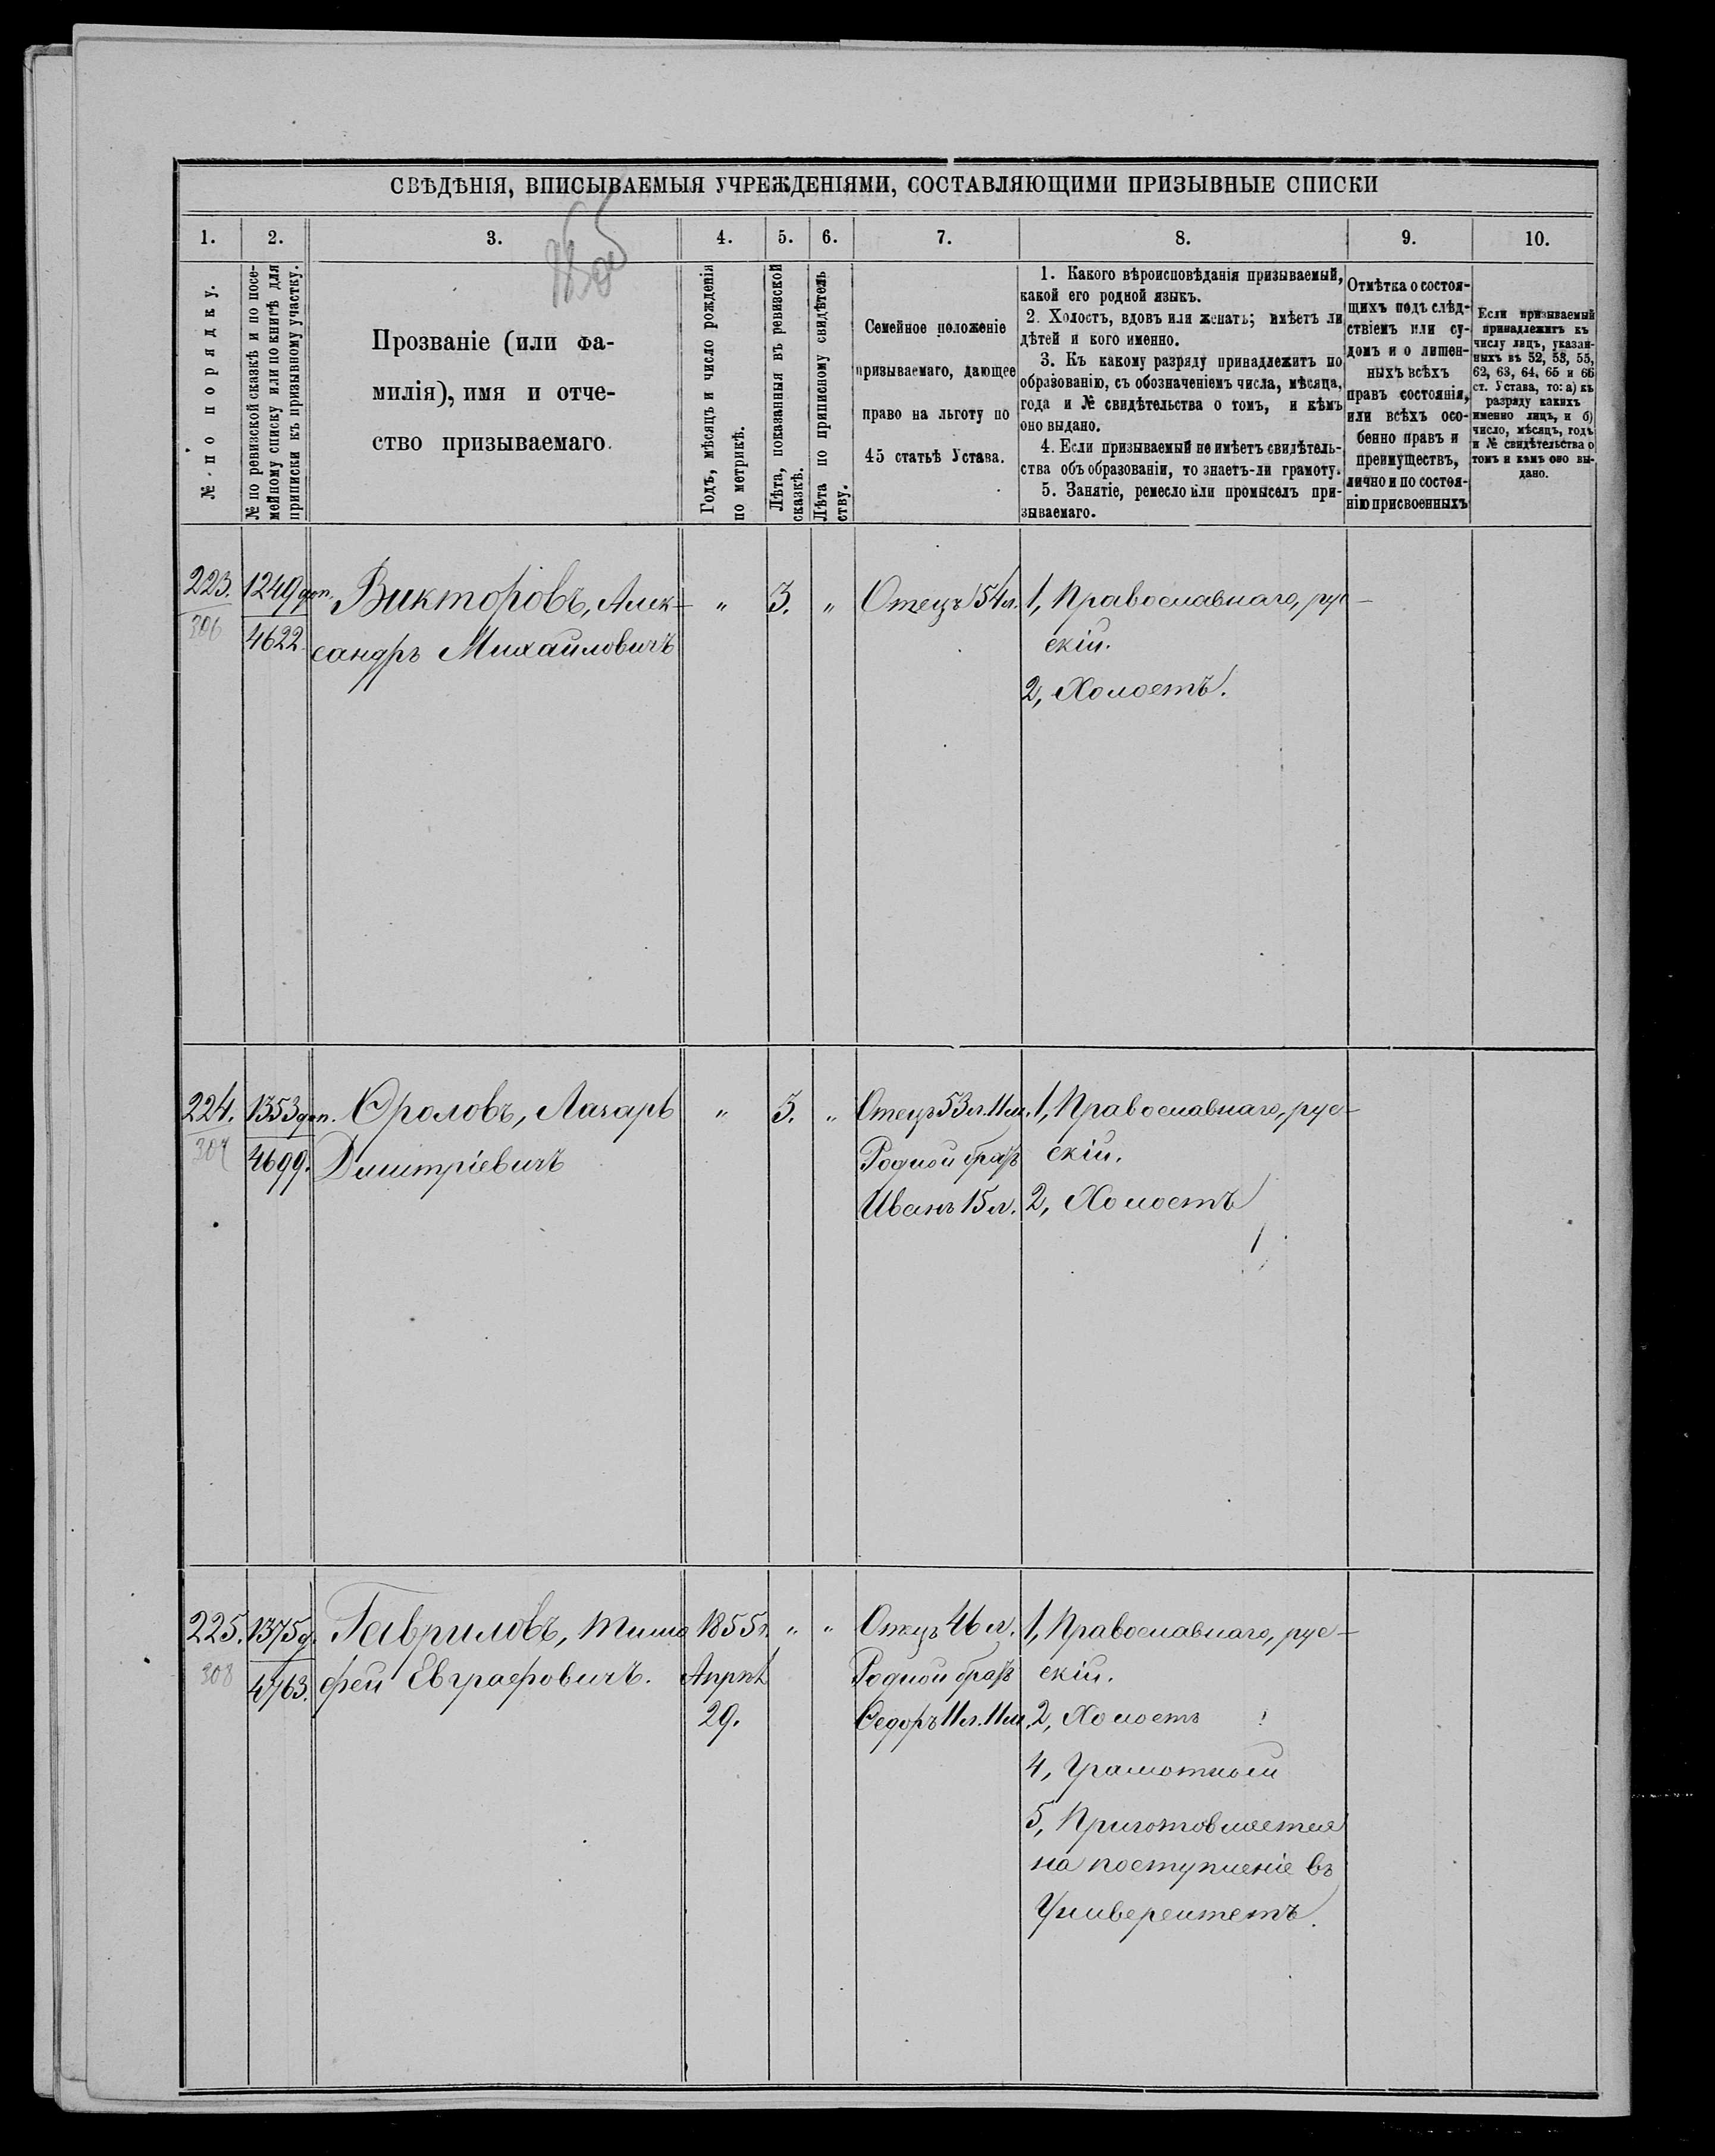 СВѢДѢНІЯ, ВПИСЫВАЕМЫЯ УЧРЕЖДЕНІЯМИ, СОСТАВЛЯЮЩИМИ ПРИЗЫВНЫЕ СПИСКИ
1. 2. 3. 4. 5. 6. 7. 8. 9. 10.
№ по порядку.
№ по ревизской сказкѣ и по посе-
мейному списку или по книгѣ для
приписки къ призывному участку.
Прозваніе (или фа-
милія), имя и отче-
ство призываемаго.
Годъ, мѣсяцъ и число рожденія
по метрикѣ.
Лѣта, показанныя въ ревизской
сказкѣ.
Лѣта по приписному свидѣтель
ству.
Семейное положеніе
призываемаго, дающее
право на льготу по
45 статьѣ Устава.
1. Какого вѣроисповѣданія призываемый,
какой его родной языкъ.
2. Холостъ, вдовъ или женатъ; имѣетъ ли
дѣтей и кого именно.
3. Къ какому разряду принадлежитъ по
образованію, съ обозначеніемъ числа, мѣсяца,
года и № свидѣтельства о томъ, и кѣмъ
оно выдано.
4. Если призываемый не имѣетъ свидѣтель-
ства объ образованіи, то знаетъ-ли грамоту.
5. Занятіе, ремесло или промыселъ при-
зываемаго.
Отмѣтка о состоя-
щихъ подъ слѣд-
ствіемъ или су-
домъ и о лишен-
ныхъ всѣхъ
правъ состоянія,
или всѣхъ осо-
бенно правъ и
преимуществъ,
лично и по состоя-
нію присвоенныхъ
Если призываемый
принадлежитъ къ
числу лицъ, указан-
ныхъ въ 52, 53, 55,
62, 63, 64, 65 и 66
ст. Устава, то: а) къ
разряду какихъ
именно лицъ, и б)
число, мѣсяцъ, годъ
и № свидѣтельства о
томъ и кѣмъ оно вы-
дано.
223. 1249 доп. Викторовъ, Алек- " 3. " Отецъ 54 л. 1, Православнаго, рус-
306 4622. сандръ Михайловичъ скій.
2, Холостъ.
224. 1353 доп. Фроловъ, Лазарь " 3. " Отецъ 53 л. 11 м. 1, Православнаго, рус-
307 4699. Димитріевичъ Родной братъ скій.
Иванъ 15 л. 2, Холостъ
225. 1375 д. Гавриловъ, Тимо 1855 г. " " Отецъ 46 л. 1, Православнаго, рус-
308 4763. фей Евграфовичъ. Апрѣл. Родной братъ скій.
29. Ѳедоръ 11 л. 11 м. 2, Холостъ
4, Грамотной
5, Приготовляется
на поступленіе въ
Университетъ.